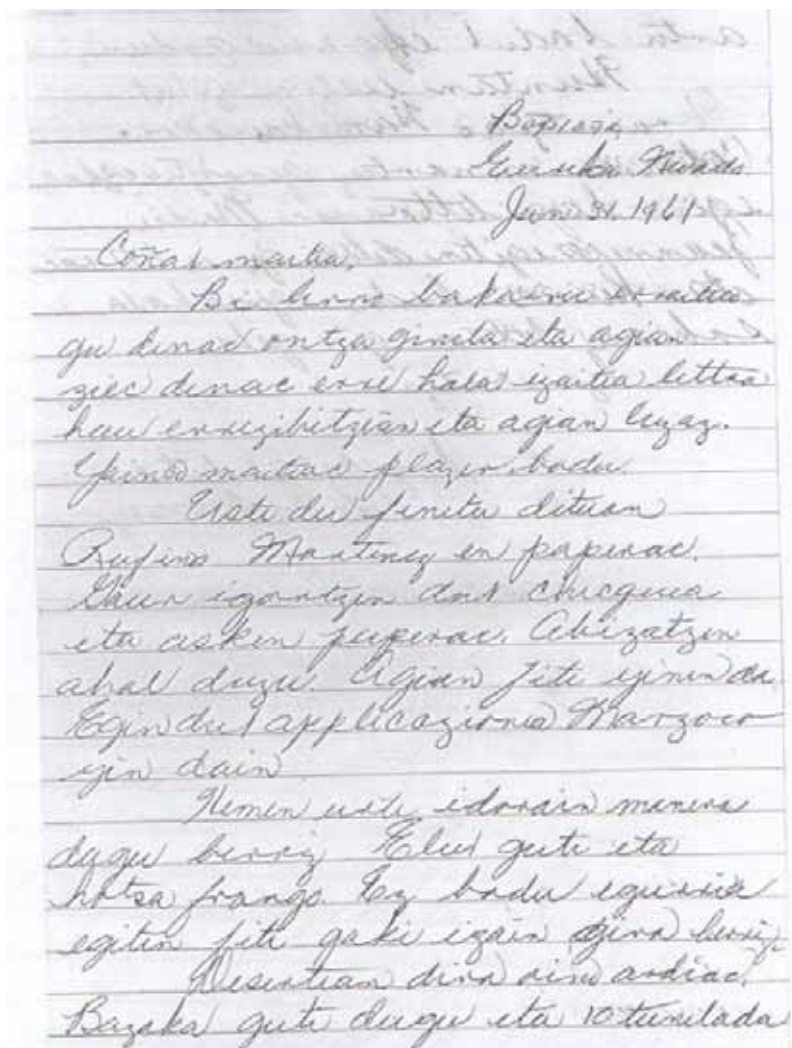 Eureka Nevada
June 31, 1961
Coñat maitia,
Bi lerro bakarric erraitea
gu denac ontza girela eta agian
ziec denac ere hala izaitia lettra
hau errezibitzian eta agian luzaz.
maitiac plazer badu.
Uste du finitu dituan
Rufino Martinez en paperac.
Gaur igortzen dut chequea
eta asken paperac. Abizatzen
ahal duzu. Agian fite yinen da.
Egin dut applicazionea Marzoco
yin dain
Hemen urte idorrain manera
dugu berriz Elur guti eta
hotza frango. Ez badu eguria
egiten fite gaki izain gira berriz.
Desertian dira ardiac.
Bazaka guti dugu eta 10 tunelada